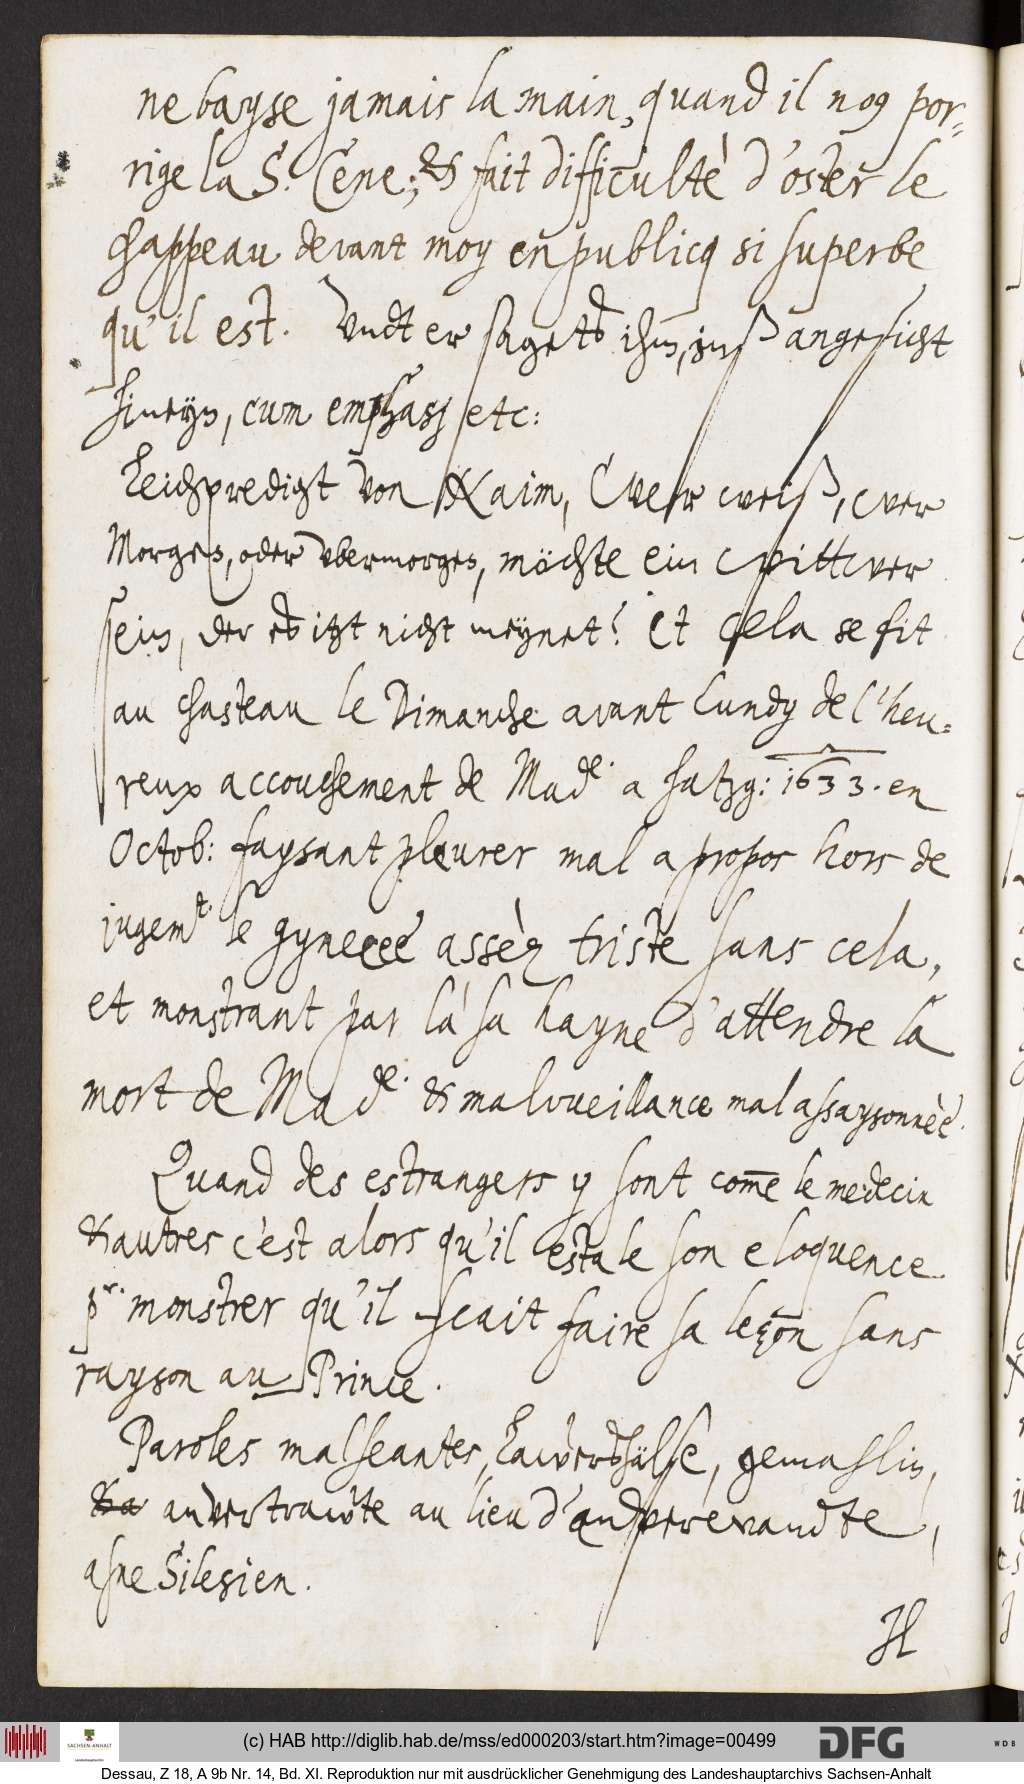 ne bayse jamais la main, quand il no9 por-
rige la S. Cene; & fait difficultè d'oster le
chappeau devant moy en publicq si superbe
qu'il est. Undt er sagets ihm, inß angesicht
hineyn, cum emphasj etc:
Leichpredigt von Kaim, (Wer weiß, wer
Morgen, oder ubermorgen, möchte ein wittwer
sein, der es itzt nicht meynet? Et cela se fit
au chasteau le Dimanche avant Lundy de l'heu-
reux accouchement de Made. a Hatzg: 1633. en
Octob: faysant pleurer mal a propos hors de
jugemt. le gyneceè assèz triste sans cela,
et monstrant par là sa hayne d'attendre la
mort de Made. & malvueillance mal assaysonnèe.
Quand des estrangers y sont com̄e le medecin
& autres c'est alors qu'il estale son eloquence
pr. monstrer qu'il sçait faire sa leçon sans
rayson au Prince.
Paroles malseantes, gemahlin,
anvertrawte au lieu d'anverwandte,
asne Silesien.
Il
(c) HAB http://diglib.hab.de/mss/ed000203/start.htm?image=00499
SACHSEN-ANHALT
Landeshauptarchiv
DFG
WDB
Dessau, Z 18, A 9b Nr. 14, Bd. XI. Reproduktion nur mit ausdrücklicher Genehmigung des Landeshauptarchivs Sachsen-Anhalt